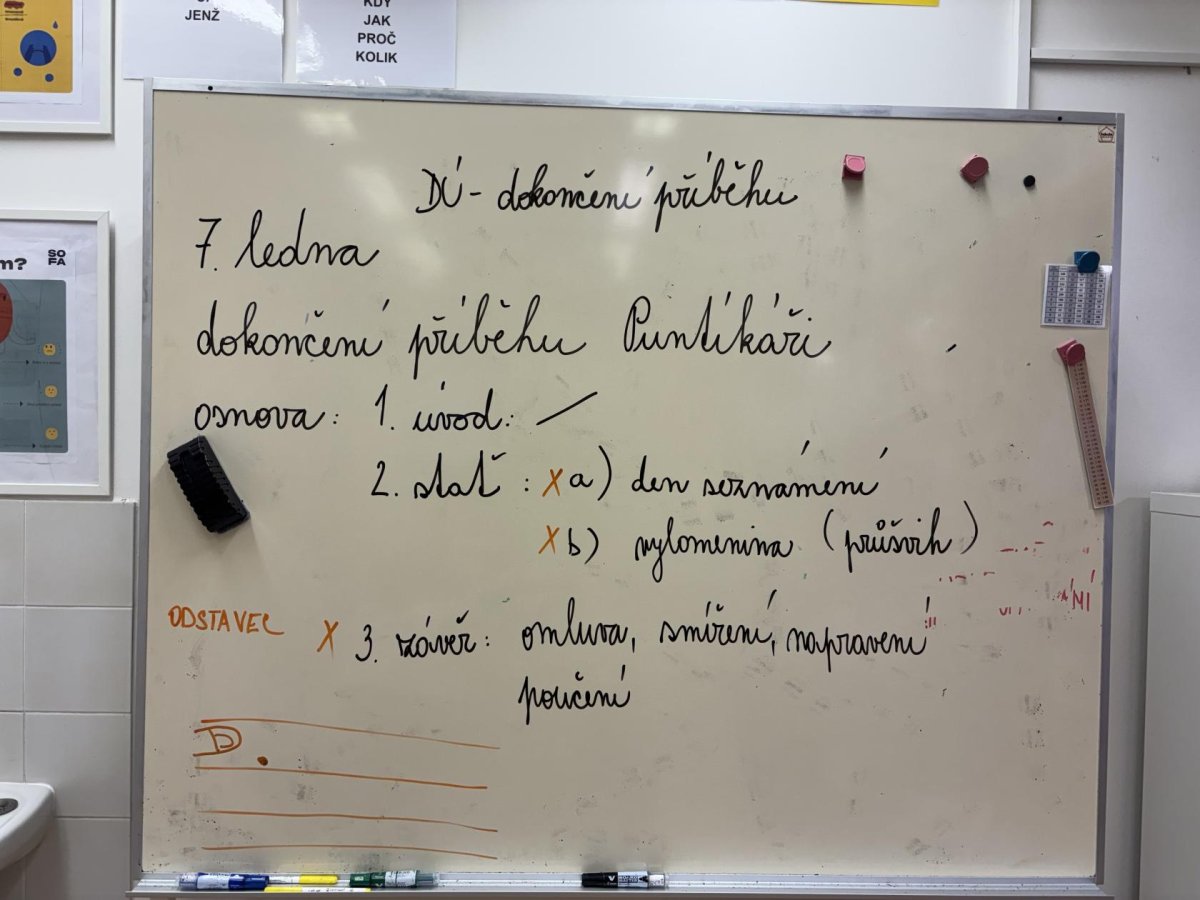 JENŽ
KDY
JAK
PROČ
KOLIK
m?
SO
FA
DÚ - dokončení příběhu
7. ledna
dokončení příběhu Puntíkáři
osnova: 1. úvod: /
2. stať : x a) den seznámení
x b) vylomenina (průšvih)
ODSTAVEC x 3. závěr: omluva, smíření, napravení
poučení